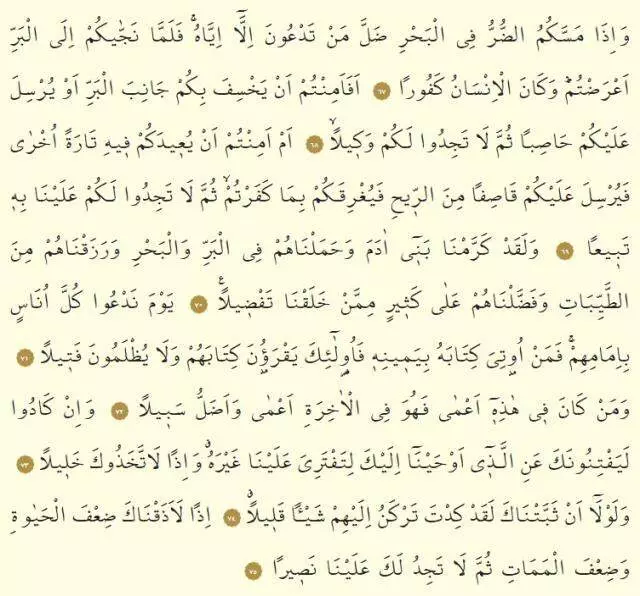 وَاِذَا مَسَّكُمُ الضُّرُّ فِى الْبَحْرِ ضَلَّ مَنْ تَدْعُونَ اِلَّٓا اِيَّاهُۚ فَلَمَّا نَجّٰيكُمْ اِلَى الْبَرِّ
اَعْرَضْتُمْۜ وَكَانَ الْاِنْسَانُ كَفُورًا ﴿٦٧﴾ اَفَاَمِنْتُمْ اَنْ يَخْسِفَ بِكُمْ جَانِبَ الْبَرِّ اَوْ يُرْسِلَ
عَلَيْكُمْ حَاصِبًا ثُمَّ لَا تَجِدُوا لَكُمْ وَك۪يلًاۙ ﴿٦٨﴾ اَمْ اَمِنْتُمْ اَنْ يُع۪يدَكُمْ ف۪يهِ تَارَةً اُخْرٰى
فَيُرْسِلَ عَلَيْكُمْ قَاصِفًا مِنَ الرّ۪يحِ فَيُغْرِقَكُمْ بِمَا كَفَرْتُمْۙ ثُمَّ لَا تَجِدُوا لَكُمْ عَلَيْنَا بِه۪
تَب۪يعًا ﴿٦٩﴾ وَلَقَدْ كَرَّمْنَا بَن۪ٓى اٰدَمَ وَحَمَلْنَاهُمْ فِى الْبَرِّ وَالْبَحْرِ وَرَزَقْنَاهُمْ مِنَ
الطَّيِّبَاتِ وَفَضَّلْنَاهُمْ عَلٰى كَث۪يرٍ مِمَّنْ خَلَقْنَا تَفْض۪يلًا۟ ﴿٧٠﴾ يَوْمَ نَدْعُوا كُلَّ اُنَاسٍ
بِاِمَامِهِمْۚ فَمَنْ اُو۫تِىَ كِتَابَهُ بِيَم۪ينِه۪ فَاُو۬لٰٓئِكَ يَقْرَؤُ۫نَ كِتَابَهُمْ وَلَا يُظْلَمُونَ فَت۪يلًا ﴿٧١﴾
وَمَنْ كَانَ ف۪ى هٰذِه۪ٓ اَعْمٰى فَهُوَ فِى الْاٰخِرَةِ اَعْمٰى وَاَضَلُّ سَب۪يلًا ﴿٧٢﴾ وَاِنْ كَادُوا
لَيَفْتِنُونَكَ عَنِ الَّذ۪ٓى اَوْحَيْنَٓا اِلَيْكَ لِتَفْتَرِىَ عَلَيْنَا غَيْرَهُۗ وَاِذًا لَاتَّخَذُوكَ خَل۪يلًا ﴿٧٣﴾
وَلَوْلَٓا اَنْ ثَبَّتْنَاكَ لَقَدْ كِدْتَ تَرْكَنُ اِلَيْهِمْ شَيْـًٔا قَل۪يلًاۗ ﴿٧٤﴾ اِذًا لَاَذَقْنَاكَ ضِعْفَ الْحَيٰوةِ
وَضِعْفَ الْمَمَاتِ ثُمَّ لَا تَجِدُ لَكَ عَلَيْنَا نَص۪يرًا ﴿٧٥﴾